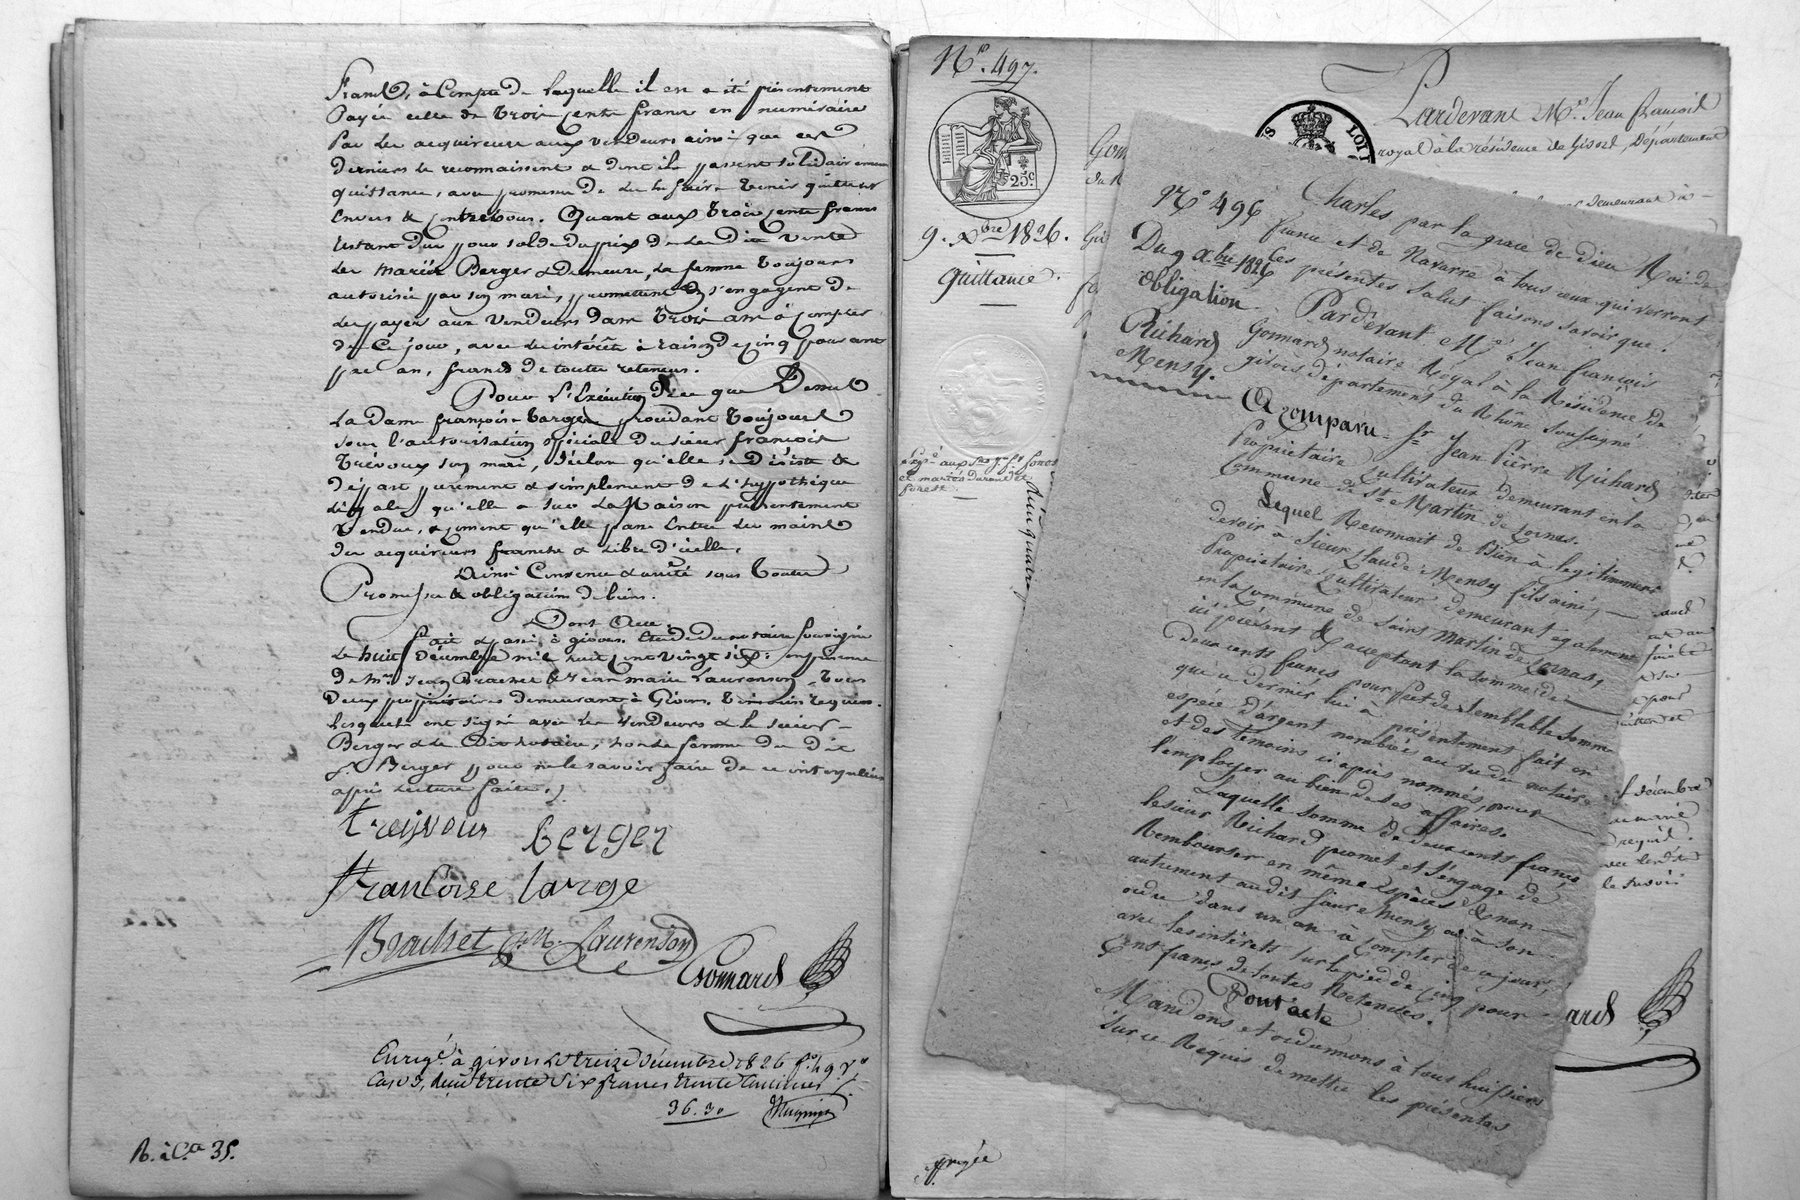 francs, à Compte de laquelle il en a été présentement
Payée celle de trois cents francs en numéraire
Par les acquéreurs aux vendeurs ainsi que ces
derniers le reconnaissent & dont ils passent solidairement
quittance, avec promesse de les faire tenir quittes
Envers & contre tous. Quant aux trois cents francs
restant dus pour solde du prix de la dite vente
les mariés Berger & demeure, la femme toujours
autorisée par son mari, promettent & s'engagent de
les payer aux vendeurs dans trois ans à compter
de ce jour, avec les intérêts à raison de cinq pour cent
par an, francs de toutes retenues.
Pour l'Exécution de ce que dessus
La dame françoise Large procédant toujours
sous l'autorisation spéciale du sieur françois
Trévoux son mari, déclare qu'elle se désiste &
départ purement & simplement de l'hypothèque
légale qu'elle a sur la Maison présentement
Vendue, & consent qu'elle passe Entre les mains
des acquéreurs franche & libre d'icelle.
Ainsi Convenu & arrêté sous toutes
Promesses & obligations de biens.
Dont Acte.
fait & passé à givors Etude du notaire soussigné
Le huit décembre mil huit cent vingt six: en présence
de Mrs Jean Brachet & Jean Marie Laurenson, tous
deux propriétaires demeurant à Givors, témoins requis
Lesquels ont signé avec les vendeurs & le sieur
Berger & le dit notaire, non la femme du dit
Sr. Berger pour ne le savoir faire de ce interpellée
après lecture faite.
treyvoux berger
françoise large
Brachet J. M. Laurenson
Gonnard
Enregé. à givors le treize décembre 1826 f° 49 v°
Case 3, reçu trente six francs trente centimes
36.30
R. à C.te 35.
N°. 497.
25c
9. Xbre 1826.
quittance.
LOI
Pardevant Me. Jean françois
royal à la résidence de Givors, Département
demeurant à
N° 496
Du 9 Xbre 1826
Obligation
Richard
Mensy.
Charles par la grace de dieu Roi de
france et de Navarre à tous ceux qui verront
les présentes salut faisons savoir que.
Pardevant Me Jean françois
Gonnard notaire Royal à la Résidence de
givors département du Rhône soussigné
A comparu Sr Jean Pierre Richard
Propriétaire Cultivateur demeurant en la
Commune de St Martin de Cornas.
Lequel Reconnait de Bien & légitimement
devoir à Sieur Claude Mensy fils ainé,
Propriétaire Cultivateur demeurant également
en la Commune de Saint Martin de Cornas,
ici présent & acceptant la somme de
deux cents francs pour prêt de semblable somme
que ce dernier lui à présentement fait en
espèce d'argent nombrées au vu du notaire
et des témoins ci après nommés, pour
l'employer au bien de ses affaires.
Laquelle somme de deux cents francs,
le sieur Richard promet et s'engage de
Rembourser en même Espèces & non
autrement audit sieur Mensy ou à son
ordre dans un an à compter de ce jour,
avec les intérêts sur le pied de Cinq pour
Cent francs de toutes Retenues.
Dont acte
Mandons et ordonnons à tous huissiers
sur ce Réquis de mettre les présentes
l décembre
ard